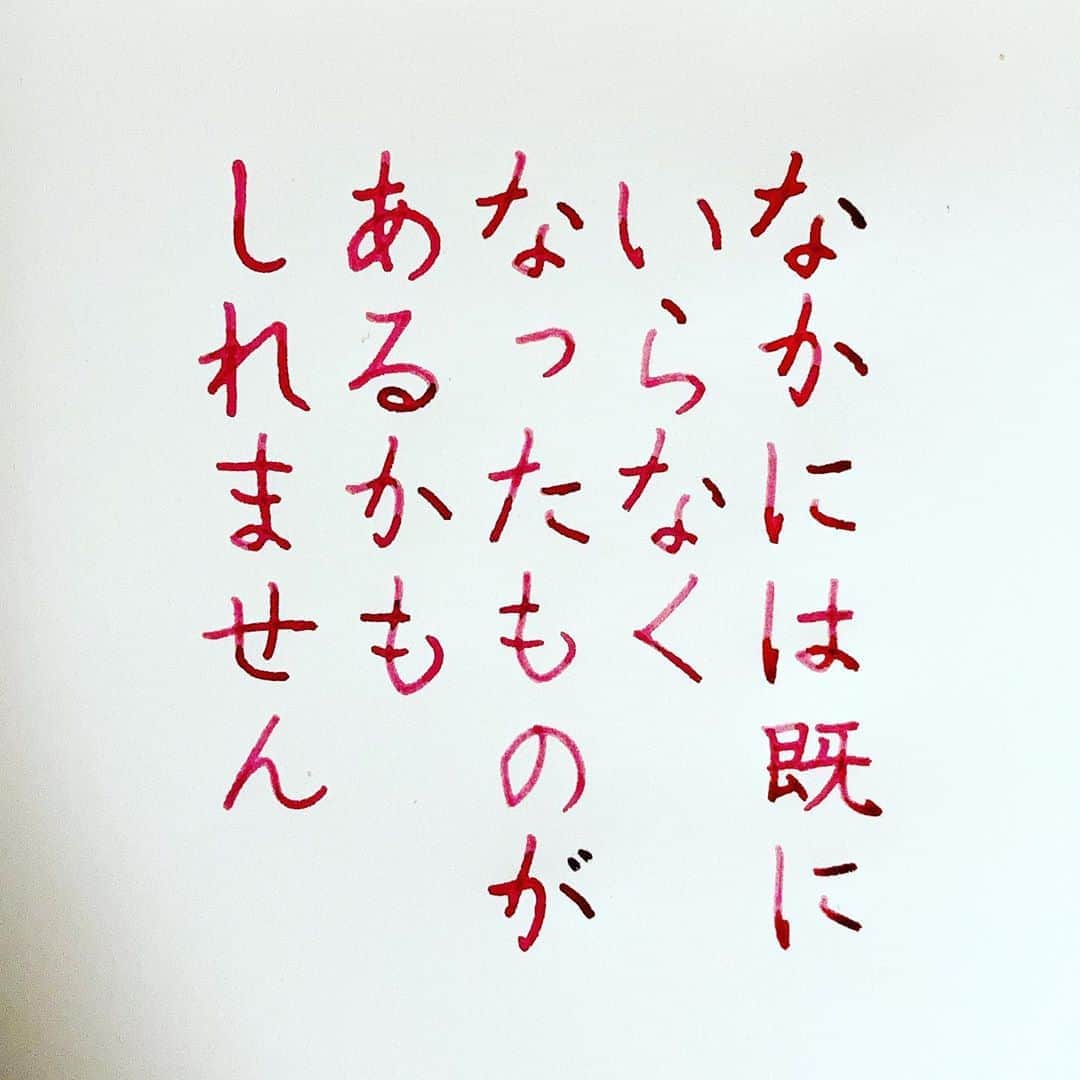 なかには既に
いらなく
なったものが
あるかも
しれません